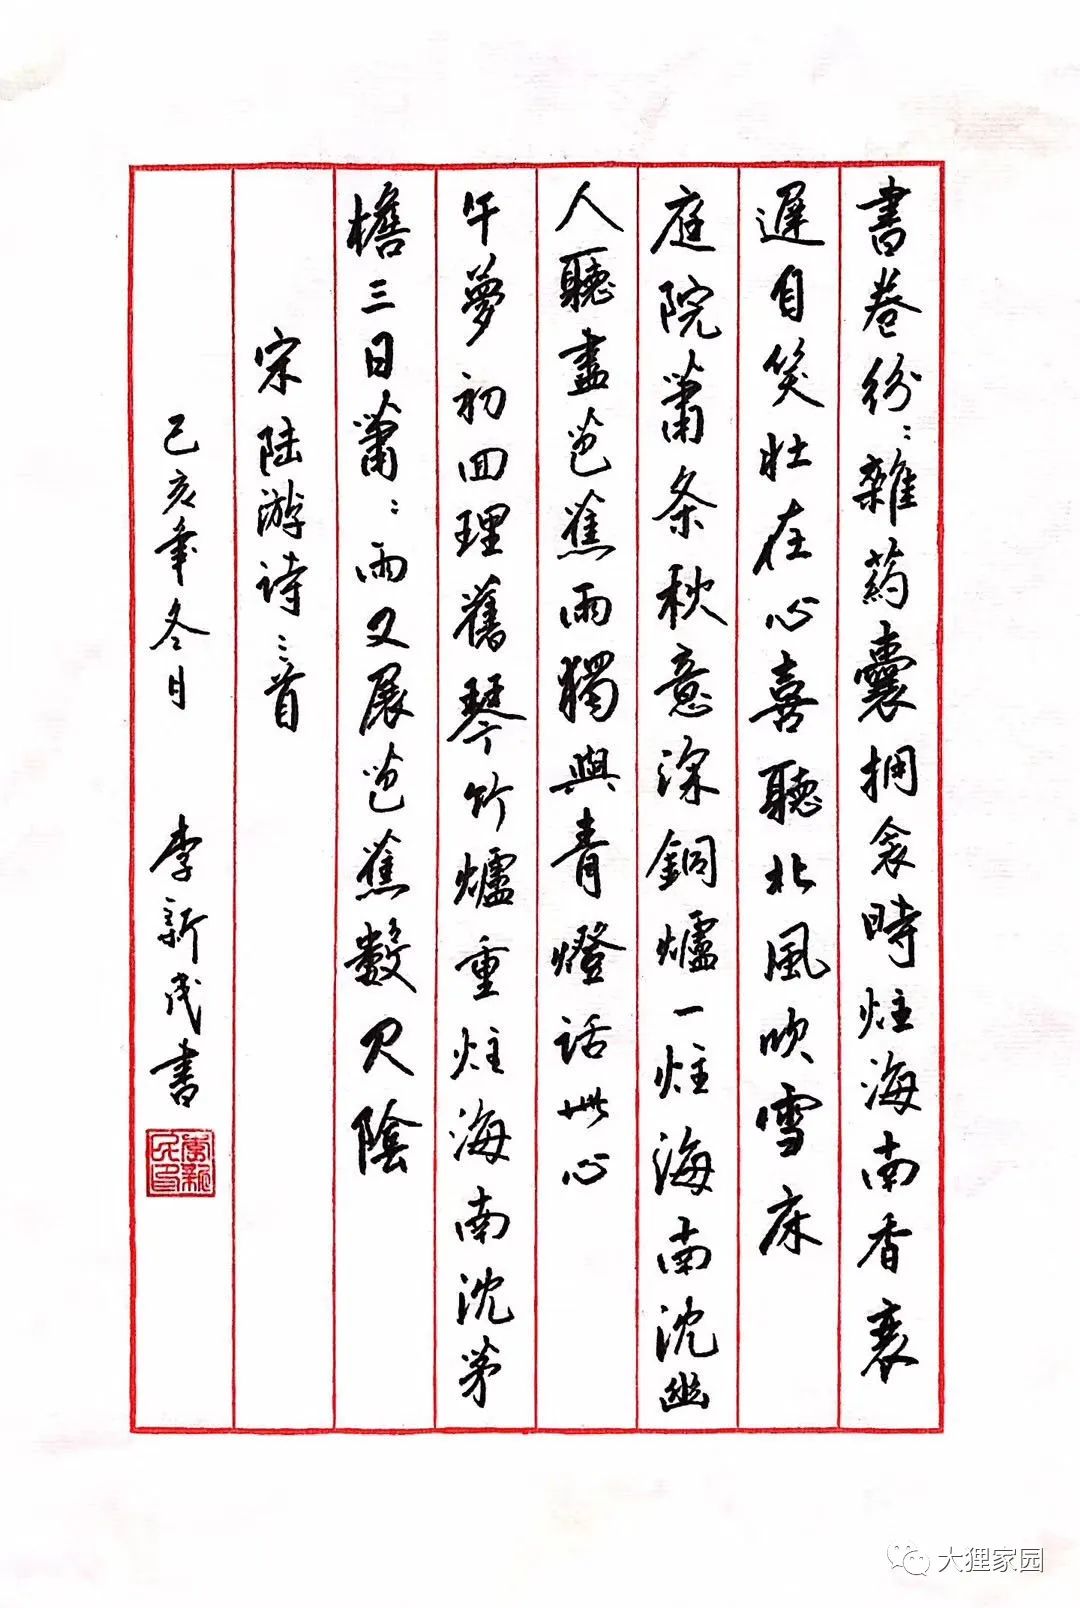 書卷紛〻雜藥囊擁衾時炷海南香衰
遲自笑壯在心喜聽北風吹雪床
庭院蕭条秋意深銅爐一炷海南沈幽
人聽盡芭蕉雨獨與青燈話此心
午夢初回理舊琴竹爐重炷海南沈茅
檐三日蕭〻雨又展芭蕉數尺陰
宋陆游诗三首
己亥年冬日 李新民書
李新民印
大狸家园